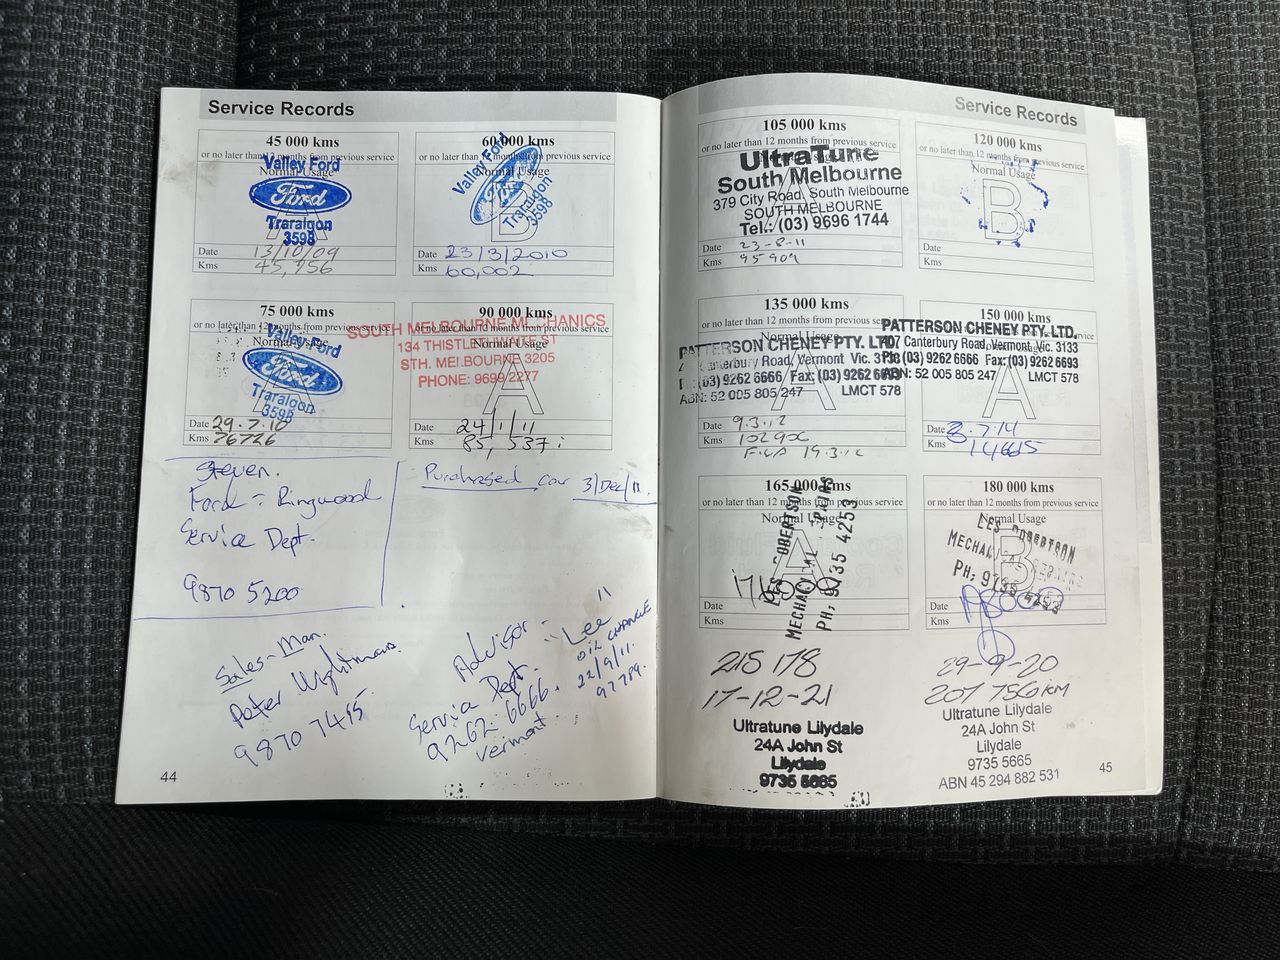 Service Records
45 000 kms
or no later than 12 months from previous service
Normal Usage
Valley Ford
Ford
A
Traralgon
3598
Date 13/10/09
Kms 45,756
60 000 kms
or no later than 12 months from previous service
Normal Usage
Valley Ford
Ford
B
Traralgon
3598
Date 23/3/2010
Kms 60,002
75 000 kms
or no later than 12 months from previous service
Normal Usage
Valley Ford
Ford
Traralgon
3598
Date 29.7.10
Kms 76726
90 000 kms
or no later than 12 months from previous service
Normal Usage
SOUTH MELBOURNE MECHANICS
134 THISTLETHWAITE ST
STH. MELBOURNE 3205
PHONE: 9699 2277
A
Date 24/1/11
Kms 85,537
Steven.
Ford - Ringwood
Service Dept.
9870 5200
Purchased car 3/Dec/11.
Sales-Man.
Peter Wightman.
9870 7415
Advisor - "Lee"
Service Dept.
9262.6666.
Vermont
OIL CHANGE
22/9/11.
97789.
44
Service Records
105 000 kms
or no later than 12 months from previous service
UltraTune
South Melbourne
379 City Road, South Melbourne
SOUTH MELBOURNE
Tel.: (03) 9696 1744
Date 23-8-11
Kms 95909
120 000 kms
or no later than 12 months from previous service
Normal Usage
B
Date
Kms
135 000 kms
or no later than 12 months from previous service
Normal Usage
PATTERSON CHENEY PTY. LTD.
Canterbury Road, Vermont Vic. 3133
(03) 9262 6666 Fax: (03) 9262 6693
ABN: 52 005 805 247 LMCT 578
A
Date 9.3.12
Kms 102906
19.3.12
150 000 kms
or no later than 12 months from previous service
PATTERSON CHENEY PTY. LTD.
407 Canterbury Road, Vermont Vic. 3133
Ph: (03) 9262 6666 Fax: (03) 9262 6693
ABN: 52 005 805 247 LMCT 578
A
Date 3.7.14
Kms
165 000 kms
or no later than 12 months from previous service
Normal Usage
A
LES ROBERTSON
MECHANICAL REPAIRS
PH: 9735 4253
Date
Kms
180 000 kms
or no later than 12 months from previous service
Normal Usage
B
LES ROBERTSON
MECHANICAL REPAIRS
PH: 9735 4253
Date
Kms
215 178
17-12-21
Ultratune Lilydale
24A John St
Lilydale
9735 5665
29-9-20
207 756 KM
Ultratune Lilydale
24A John St
Lilydale
9735 5665
ABN 45 294 882 531
45